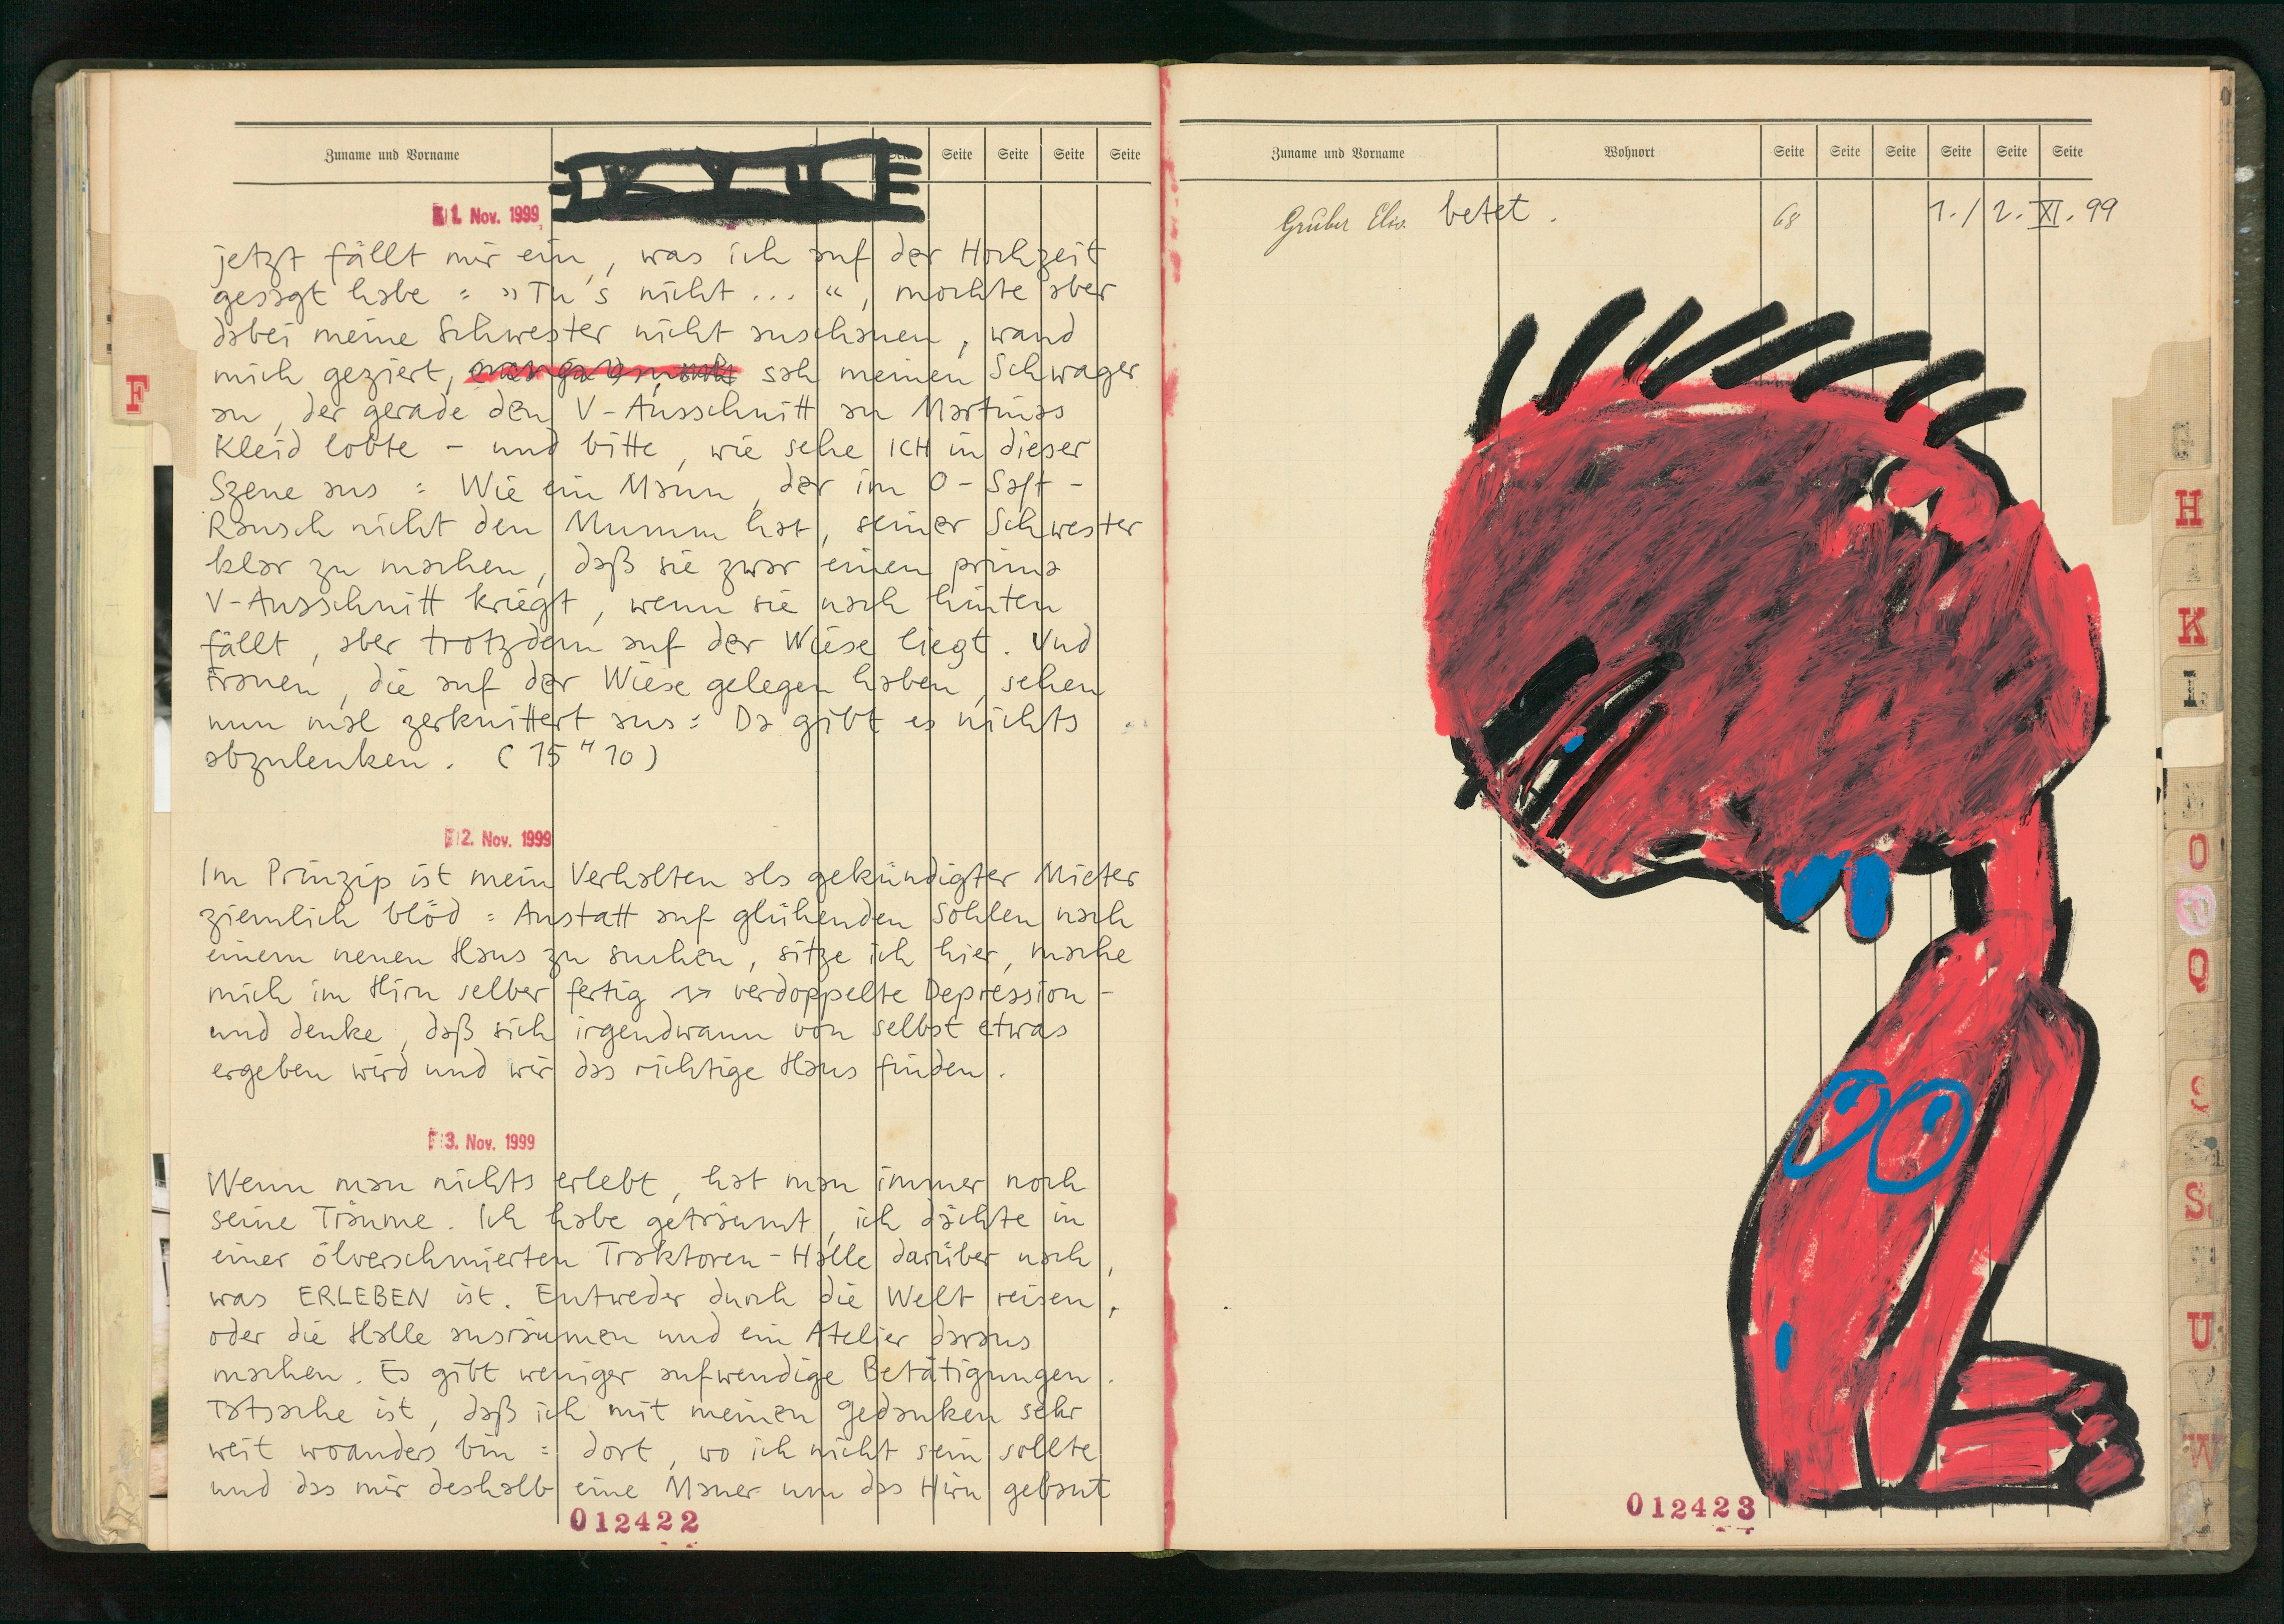 Zuname und Vorname Seite Seite Seite Seite
1. Nov. 1999
jetzt fällt mir ein, was ich auf der Hochzeit
gesagt habe : „Tu's nicht ... “, mochte aber
dabei meine Schwester nicht anschauen, wand
mich geziert, sah meinen Schwager
an, der gerade den V-Ausschnitt an Martinas
Kleid lobte – und bitte, wie sehe ICH in dieser
Szene aus : Wie ein Mann, der im O-Saft-
Rausch nicht den Mumm hat, seiner Schwester
klar zu machen, daß sie zwar einen prima
V-Ausschnitt kriegt, wenn sie nach hinten
fällt, aber trotzdem auf der Wiese liegt. Und
Frauen, die auf der Wiese gelegen haben, sehen
nun mal zerknittert aus : Da gibt es nichts
abzulenken. (15 H 10)
2. Nov. 1999
Im Prinzip ist mein Verhalten als gekündigter Mieter
ziemlich blöd : Anstatt auf glühenden Sohlen nach
einem neuen Haus zu suchen, sitze ich hier, mache
mich im Hirn selber fertig → verdoppelte Depression –
und denke, daß sich irgendwann von selbst etwas
ergeben wird und wir das richtige Haus finden.
3. Nov. 1999
Wenn man nichts erlebt, hat man immer noch
seine Träume. Ich habe geträumt, ich dächte in
einer ölverschmierten Traktoren-Halle darüber nach,
was ERLEBEN ist. Entweder durch die Welt reisen,
oder die Halle ausräumen und ein Atelier daraus
machen. Es gibt weniger aufwendige Betätigungen.
Tatsache ist, daß ich mit meinen Gedanken sehr
weit woanders bin : dort, wo ich nicht sein sollte
und das mir deshalb eine Mauer um das Hirn gebaut
012422
F
Zuname und Vorname Wohnort Seite Seite Seite Seite Seite Seite
Gruber Elis. betet. 68 1./2. XI. 99
012423
H
I
K
L
O
P
Q
S
S
U
V
W